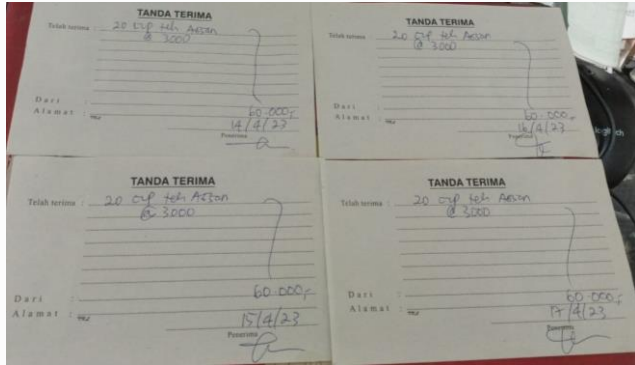 TANDA TERIMA
Telah terima : 20 cup teh Assan
@ 3000
Dari :
Alamat : 60.000,-
14/4/23
Penerima
TANDA TERIMA
Telah terima : 20 cup teh Assan
@ 3000
Dari :
Alamat : 60.000,-
/4/23
Penerima
TANDA TERIMA
Telah terima : 20 cup teh Assan
@ 3000
60.000,-
Dari :
Alamat :
15/4/23
Penerima
TANDA TERIMA
Telah terima : 20 cup teh Assan
@ 3000
Dari : 60.000,-
Alamat : 17/4/23
Penerima